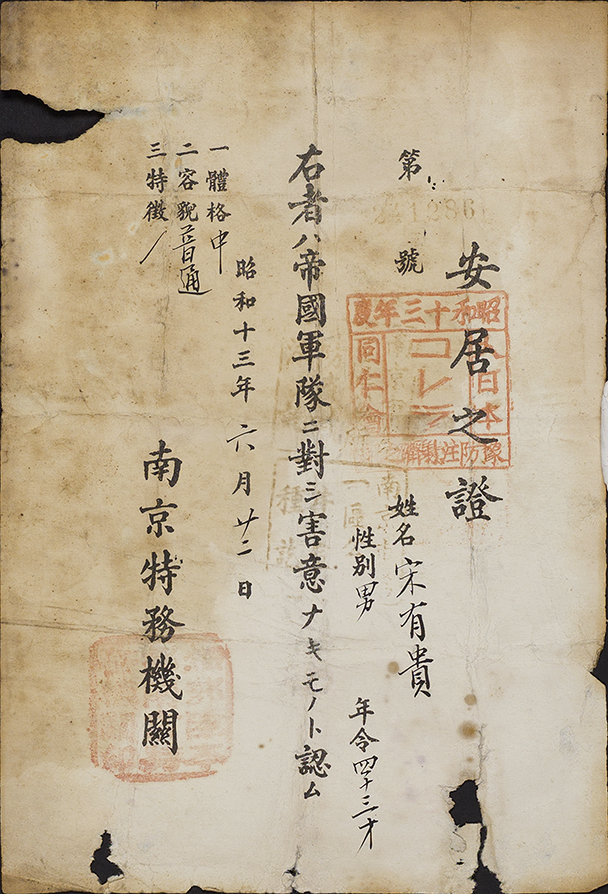 安居之證
第
號
昭和十三年度
日本
コレラ
同仁會
豫防注射濟
姓名 宋有貴
性別 男
年令 四十三才
右者ハ帝國軍隊ニ對シ害意ナキモノト認ム
昭和十三年六月廿二日
一 體格 中
二 容貌 普通
三 特徴 /
南京特務機關